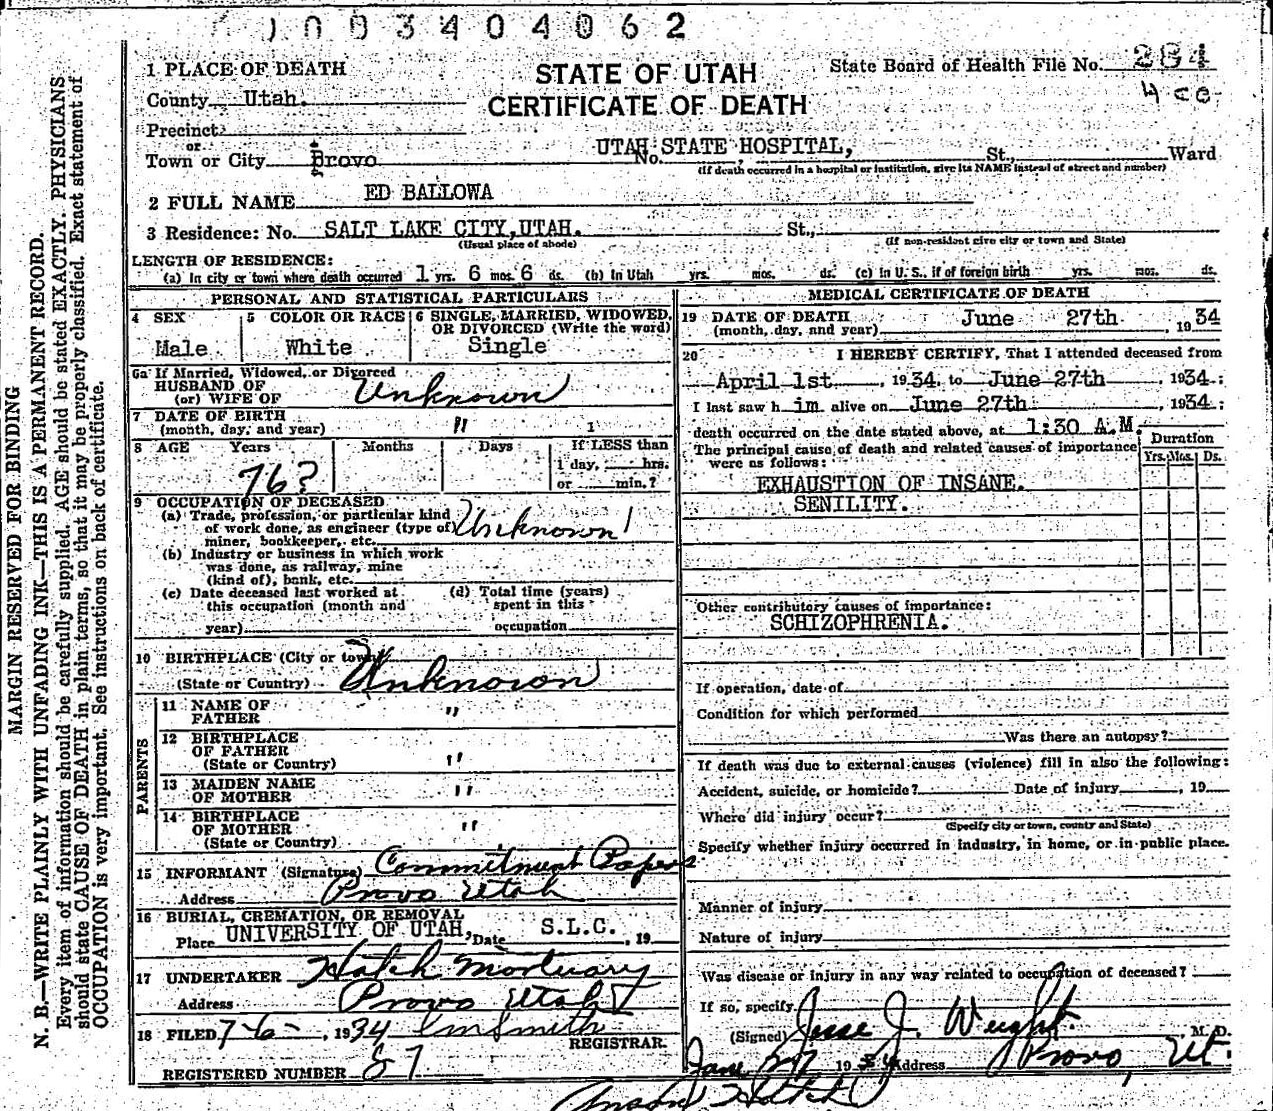 1003404062
1 PLACE OF DEATH
STATE OF UTAH
CERTIFICATE OF DEATH
State Board of Health File No. 284
County Utah.
Precinct
or
Town or City Provo
UTAH STATE HOSPITAL,
No. St., Ward
(If death occurred in a hospital or institution, give its NAME instead of street and number)
2 FULL NAME ED BALLOWA
3 Residence: No. SALT LAKE CITY, UTAH. St.,
(Usual place of abode) (If non-resident give city or town and State)
LENGTH OF RESIDENCE:
(a) In city or town where death occurred 1 yrs. 6 mos. 6 ds. (b) In Utah yrs. mos. ds. (c) in U. S., if of foreign birth yrs. mos. ds.
PERSONAL AND STATISTICAL PARTICULARS
4 SEX
Male
5 COLOR OR RACE
White
6 SINGLE, MARRIED, WIDOWED,
OR DIVORCED (Write the word)
Single
6a If Married, Widowed, or Divorced
HUSBAND OF
(or) WIFE OF Unknown
7 DATE OF BIRTH
(month, day, and year) "
8 AGE Years Months Days If LESS than
76? 1 day, hrs.
or min.?
9 OCCUPATION OF DECEASED
(a) Trade, profession, or particular kind
of work done, as engineer (type of) Unknown
miner, bookkeeper, etc.
(b) Industry or business in which work
was done, as railway, mine
(kind of), bank, etc.
(c) Date deceased last worked at
this occupation (month and
year)
(d) Total time (years)
spent in this
occupation
10 BIRTHPLACE (City or town)
(State or Country) Unknown
PARENTS
11 NAME OF
FATHER "
12 BIRTHPLACE
OF FATHER
(State or Country) "
13 MAIDEN NAME
OF MOTHER "
14 BIRTHPLACE
OF MOTHER "
(State or Country)
15 INFORMANT (Signature) Commitment Papers
Address Provo Utah
16 BURIAL, CREMATION, OR REMOVAL
Place UNIVERSITY OF UTAH, Date S.L.C. , 19
17 UNDERTAKER Hatch Mortuary
Address Provo Utah
18 FILED 7-6- , 1934
REGISTRAR.
REGISTERED NUMBER 87
MEDICAL CERTIFICATE OF DEATH
19 DATE OF DEATH
(month, day, and year) June 27th , 1934
20 I HEREBY CERTIFY, That I attended deceased from
April 1st , 1934. to June 27th , 1934.;
I last saw h im alive on June 27th , 1934.;
death occurred on the date stated above, at 1:30 A.M.
The principal cause of death and related causes of importance
were as follows:
Duration
Yrs. Mos. Ds.
EXHAUSTION OF INSANE.
SENILITY.
Other contributory causes of importance:
SCHIZOPHRENIA.
If operation, date of
Condition for which performed
Was there an autopsy?
If death was due to external causes (violence) fill in also the following:
Accident, suicide, or homicide? Date of injury , 19
Where did injury occur?
(Specify city or town, county and State)
Specify whether injury occurred in industry, in home, or in public place.
Manner of injury
Nature of injury
Was disease or injury in any way related to occupation of deceased?
If so, specify
(Signed) Jesse J. Weight. M. D.
June 27 1934 Address Provo, Ut.
MARGIN RESERVED FOR BINDING
N. B.—WRITE PLAINLY WITH UNFADING INK—THIS IS A PERMANENT RECORD.
Every item of information should be carefully supplied. AGE should be stated EXACTLY. PHYSICIANS
should state CAUSE OF DEATH in plain terms, so that it may be properly classified. Exact statement of
OCCUPATION is very important. See instructions on back of certificate.